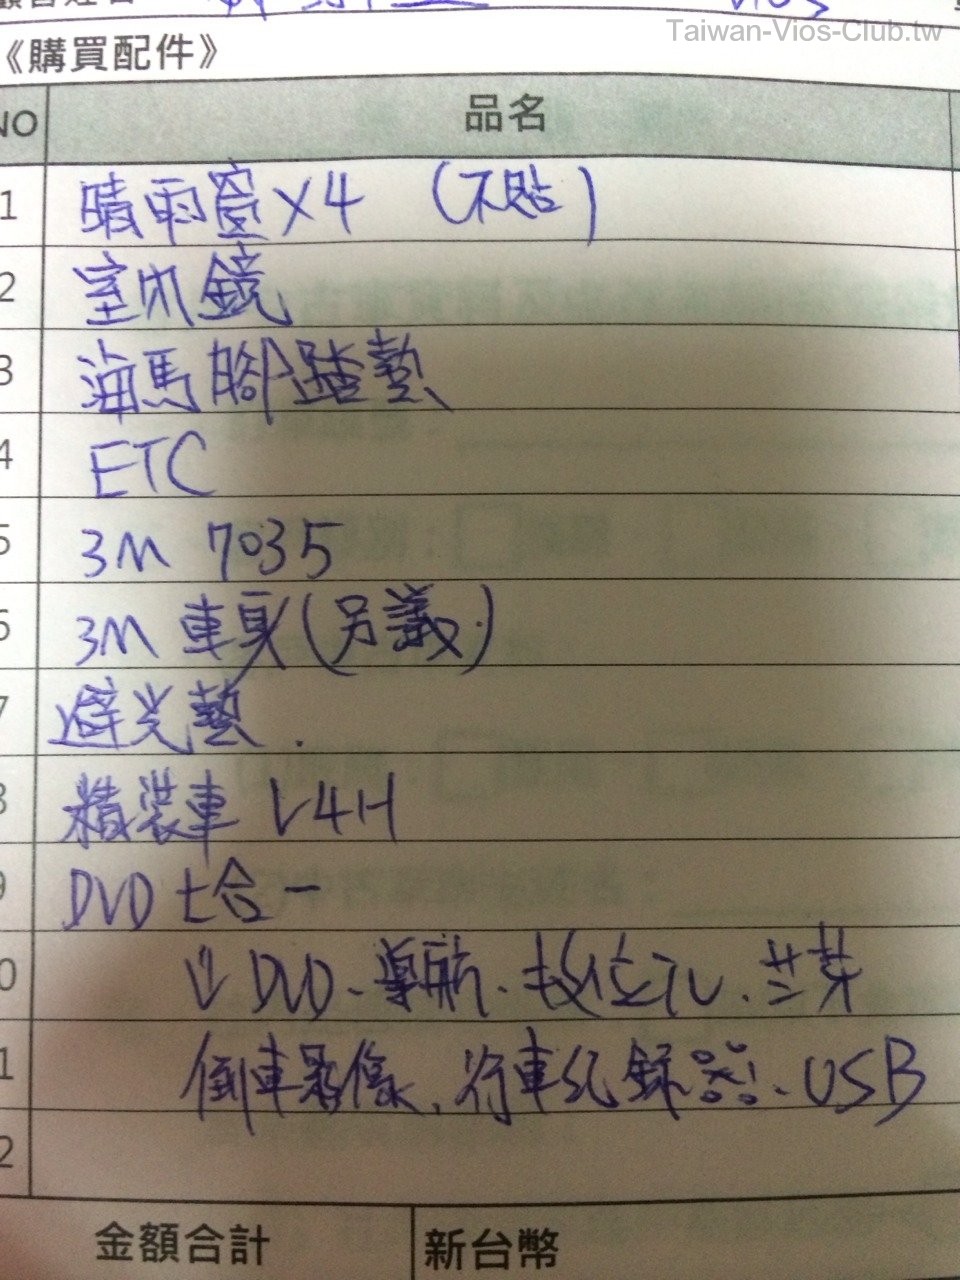 Taiwan-Vios-Club.tw
《購買配件》
NO 品名
1 晴雨窗×4 (不貼)
2 室內鏡
3 海馬腳踏墊
4 ETC
5 3M 7035
6 3M 車身(另議)
7 避光墊.
8 精裝車 V4H
9 DVD 七合一
10 ↓ DVD、導航、數位TV、藍芽
11 倒車影像、行車紀錄器、USB
12
金額合計 新台幣